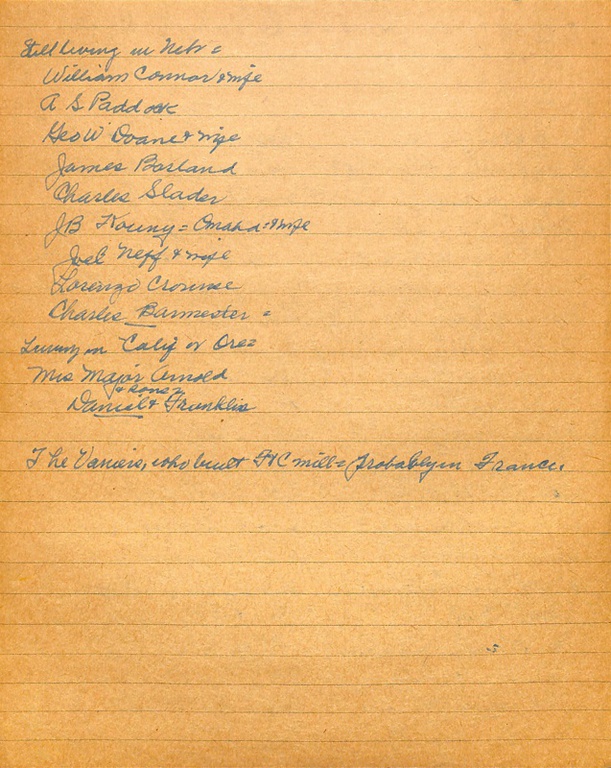 Still living in Nebr =
William Connor & wife
A S Paddock
Geo W Doane & wife
James Borland
Charles Slader
JB Young = Omaha = & wife
Joel Neff & wife
Lorenzo Crounse
Charles Burmester =
Living in Calif or Ore =
Mrs Major Arnold
& sons
Daniel & Franklin
The Vaniers, who built Ft C mill = probably in France.